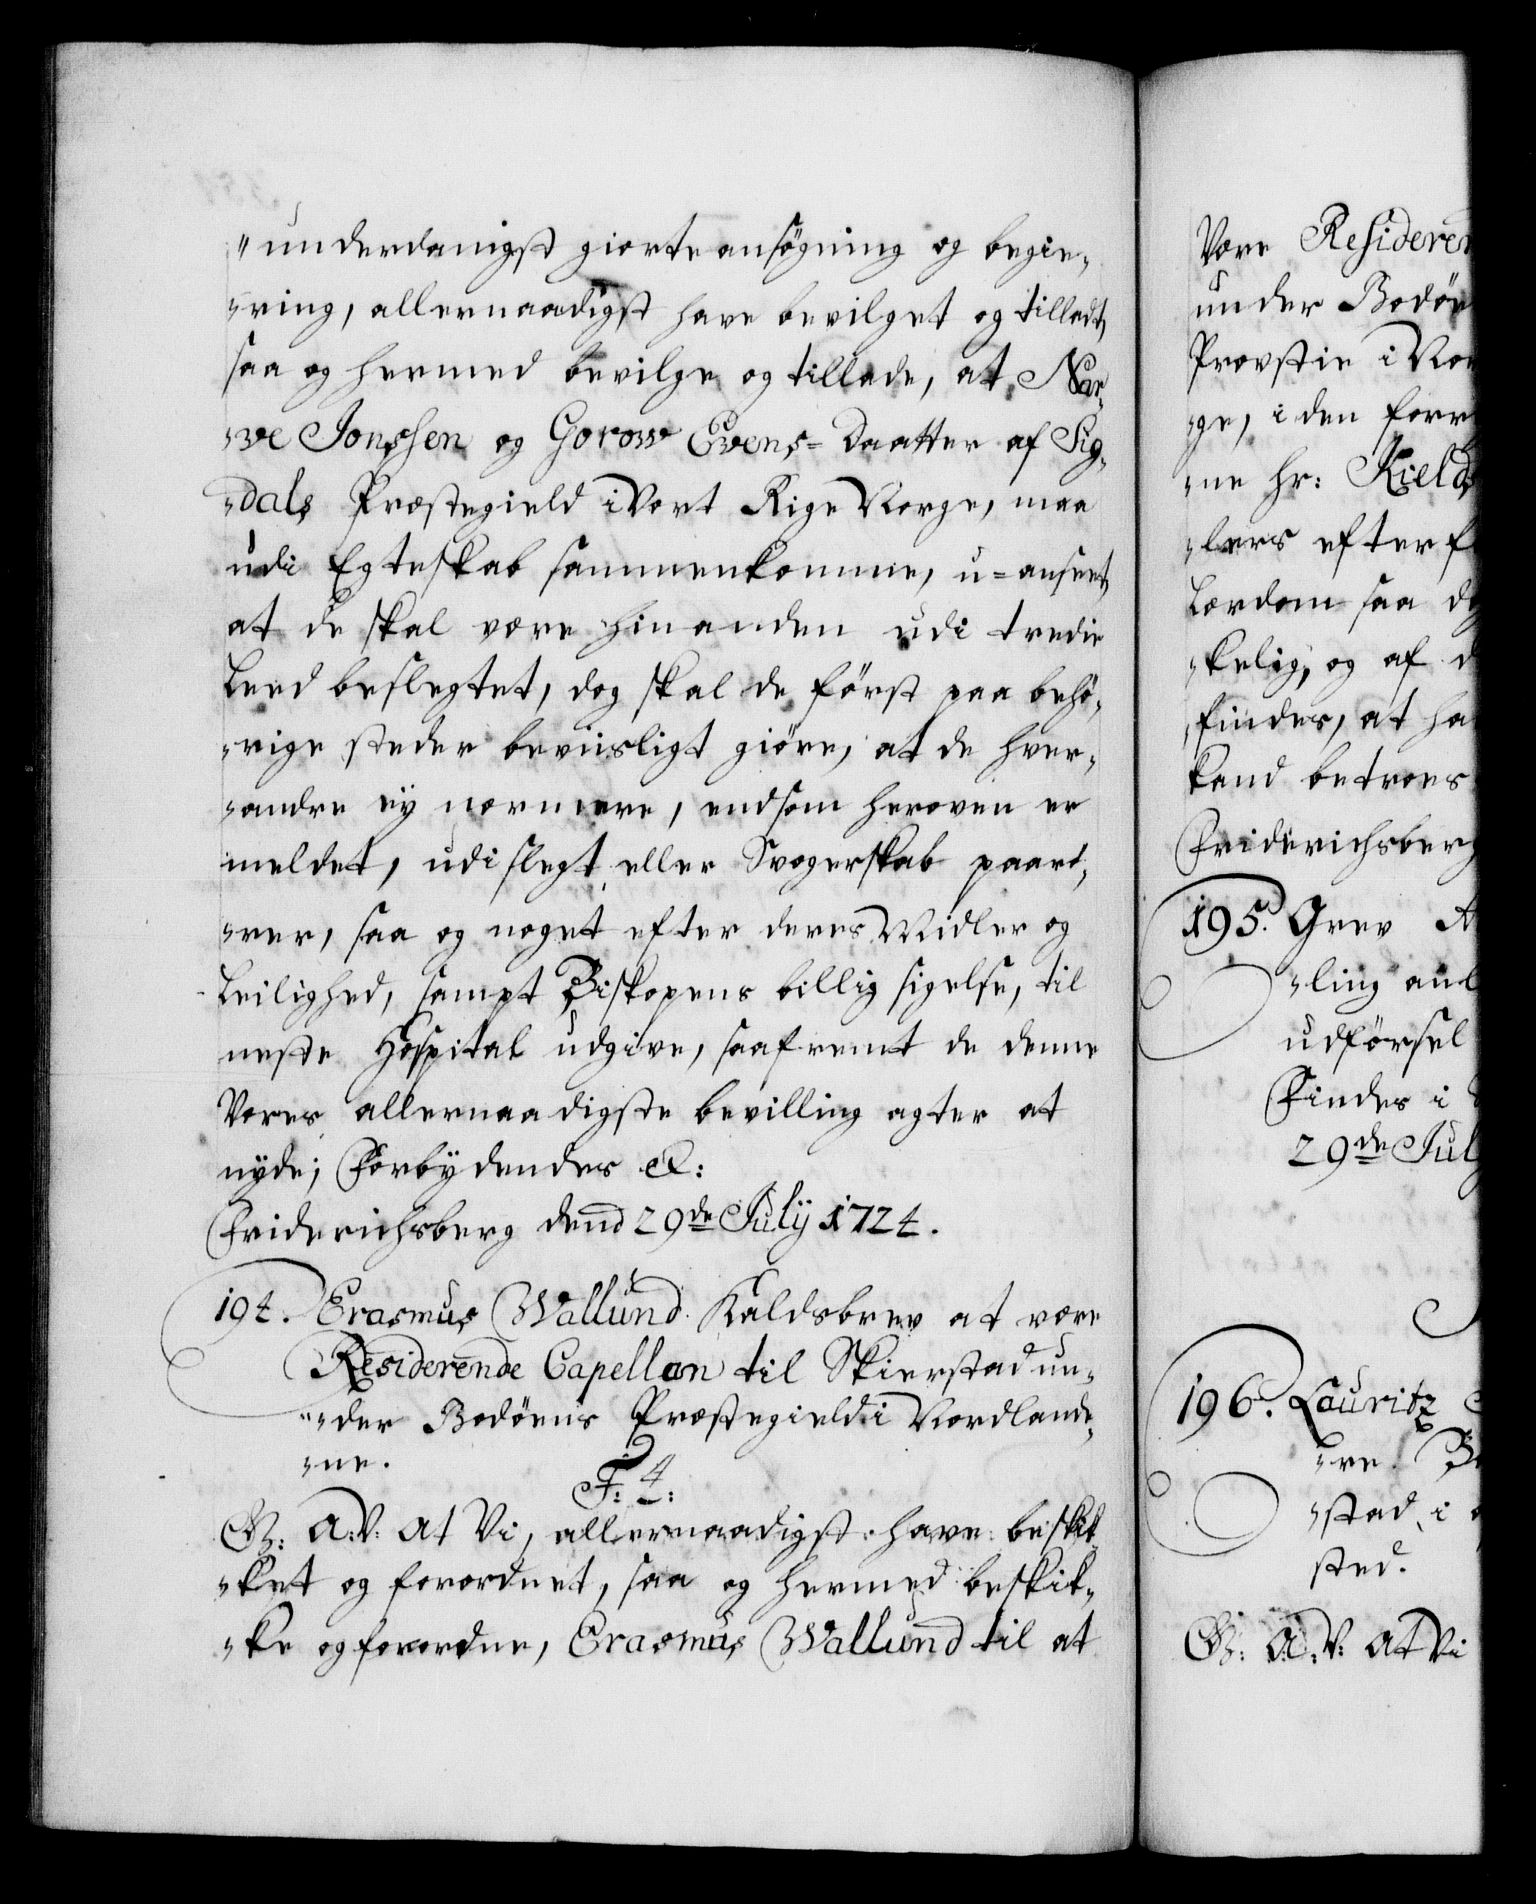 "underdanigst giorte ansøgning og begie„
„ring, allernaadigst have bevilget og tilladt,
saa og hermed bevilge og tillade, at Nar„
„ve Jonssen og Gorow Evens=Daatter af Sig„
„dals Præstegield i Vort Rige Norge, maa
udi Egteskab sammenkomme, u=anseet,
at de skal være hinanden udi tredie
Leed beslegtet, dog skal de først paa behø„
„rige steder beviisligt giøre, at de hver„
„andre ej nærmere, end som heroven er
meldet, udi slegt eller Svogerskab paarø„
„rer, saa og noget efter deres Midler og
Leilighed, sampt Biskopens billig sigelse, til
neste Hospital udgive, saafremt de denne
Vores allernaadigste bevilling agter at
nyde; Forbydendes &:
Friderichsberg dend 29de Julij 1724.
194. Erasmus Wallund Kaldsbrev at være
Residerende Capellan til Skierstad un„
„der Bodøens Præstegield i Nordlande„
„ne.
F: 4:
G: A:V: At Vi, allernaadigst have beskik„
„ket og forordnet, saa og hermed beskik„
„ke og forordne, Erasmus Wallund til at
Vore Residerer
under Bodøe
Provstie i Nor
„ge, i den forr
„ne Hr: Kields
„lers efterf
Lærdom saa do
„kelig, og af d
„findes, at ha
kand betroes
Friderichsberg
195. Grev A
„ling anl
udførsel
Findes i
29de July
196. Lauritz
„re B
„stad, i
sted.
G: A:V: At Vi